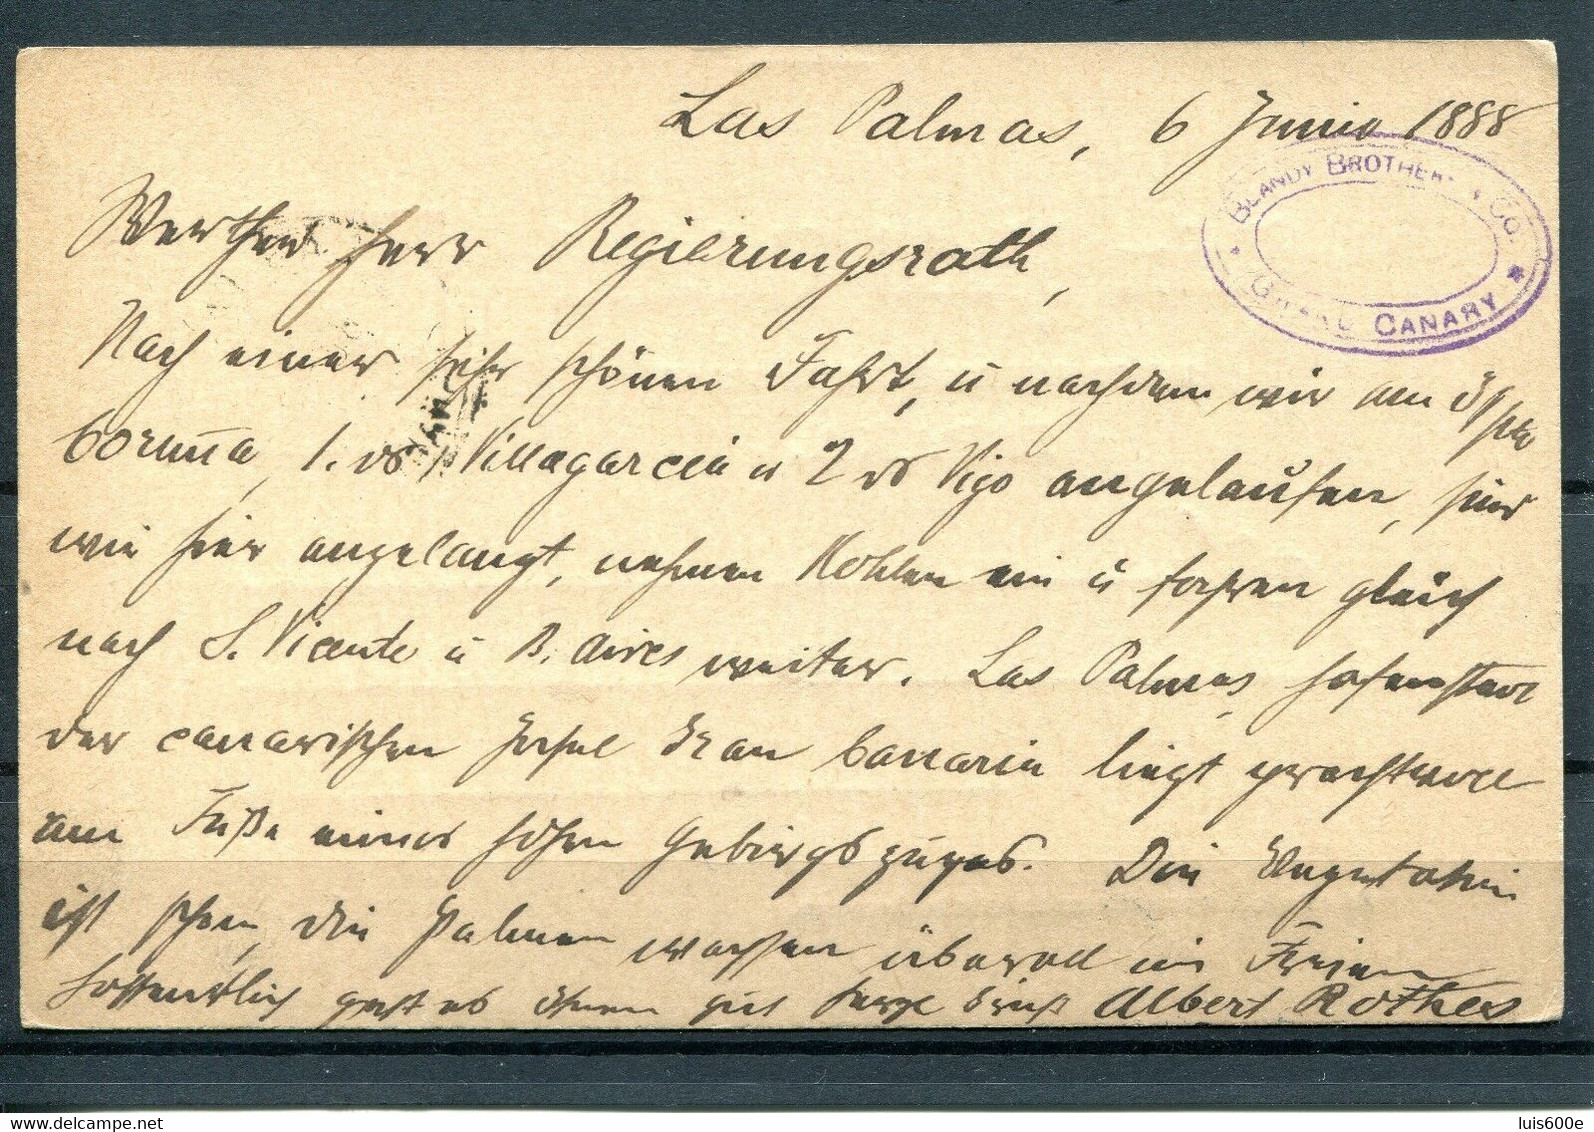 Las Palmas, 6 Junio 1888
BLANDY BROTHERS & Co.
GRAND CANARY
Werther Herr Regierungsrath,
Nach einer sehr schönen Fahrt, u nachdem wir am
Coruña, 1. ds Villagarcia u 2 ds Vigo angelaufen, sind
wir hier angelangt, nehmen Kohlen ein u fahren gleich
nach S. Vicente u B. Aires weiter. Las Palmas, Hafenstadt
der canarischen Insel Gran Canaria liegt prachtvoll
am Fuße eines hohen Gebirgszuges. Die Vegetation
ist schön, die Palmen wachsen überall im Freien
Hoffentlich geht es Ihnen gut Herzl Gruß Albert Rothes
luis600e